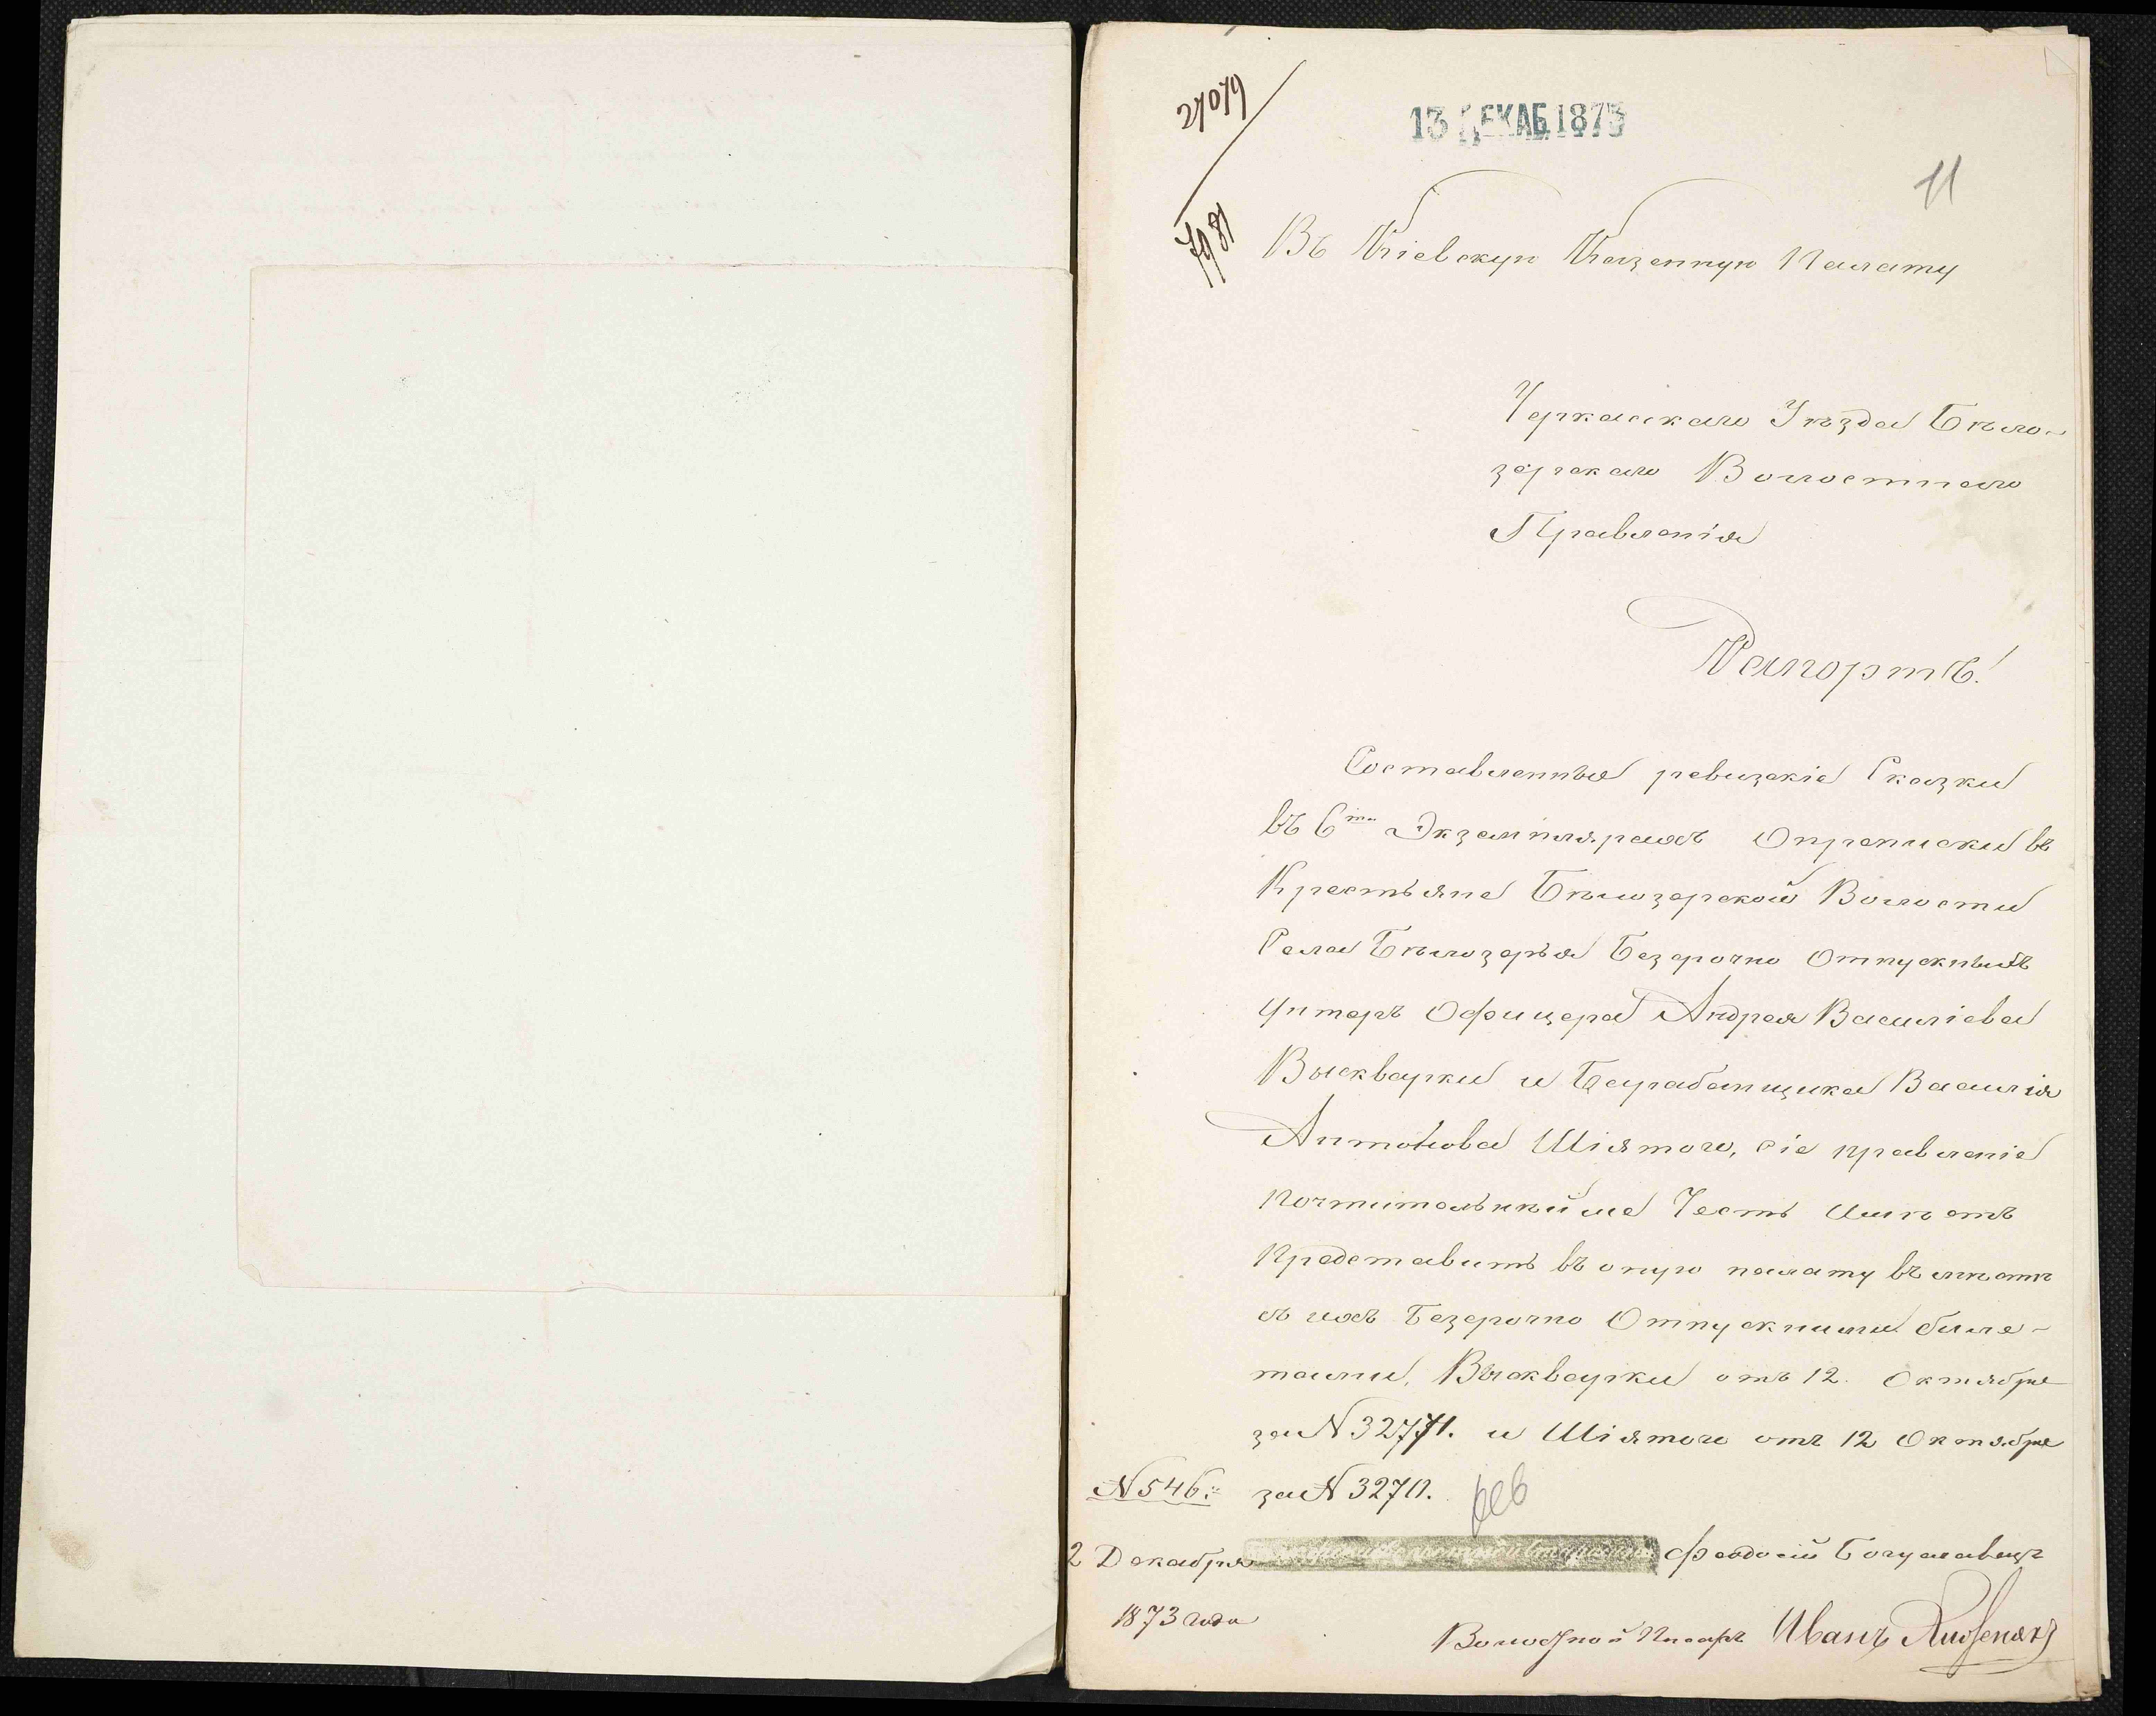 27079
7981
13 ДЕКАБ 1873
11
Въ Кіевскую Казенную Палату
Черкаскаго Уѣзда Бѣло-
зерскаго Волостнаго
Правленія
Рапортъ!
Составленныя ревизскіе Сказки
въ 6ти Экземплярахъ О припискѣ въ
Крестьяне Бѣлозерской Волости
Села Бѣлозерья Безсрочно Отпускныхъ
Унтеръ Офицера Андрея Василіева
Выскварки и Барабанщика Василія
Антонова Шіятого, сіе правленіе
Почтительнѣйше Честь имѣетъ
Представить въ оную палату въ мѣстѣ
съ ихъ Безсрочно Отпускними биле-
тами, Выскварки отъ 12 Октября
за N 32771. и Шіятого отъ 12 Октября
за N 32711.
N 546.
2 Декабря
Феодосій Богуславецъ
1873 года
Волостной Писарь Иванъ